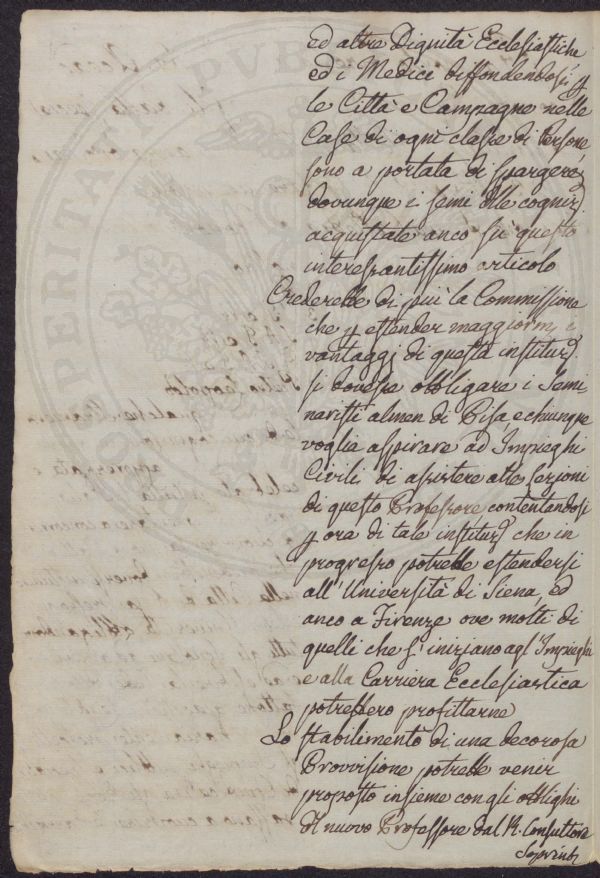 ed altre Dignità Ecclesiastiche
ed i Medici diffondendosi p
le Città e Campagne nelle
Case di ogni classe di Persone
sono a portata di spargere
dovunque i semi delle cogniz
acquistate anco su questo
interessantissimo articolo
Crederebbe di più la Commissione
che p estender maggiorm i
vantaggj di questa instituz
si dovesse obbligare i Semi
naristi almen di Pisa e chiunque
voglia aspirare ad Impieghi
Civili di assistere alle Lezioni
di questo Professore contentandosi
p ora di tale instituz che in
progresso potrebbe estendersi
all'Università di Siena, ed
anco a Firenze ove molti di
quelli che s'iniziano agl'Impieghi
e alla Carriera Ecclesiastica
potrebbero profittarne
Lo stabilimento di una decorosa
Provvisione potrebbe venir
proposto insieme con gli obblighi
del nuovo Professore dal R. Consultore